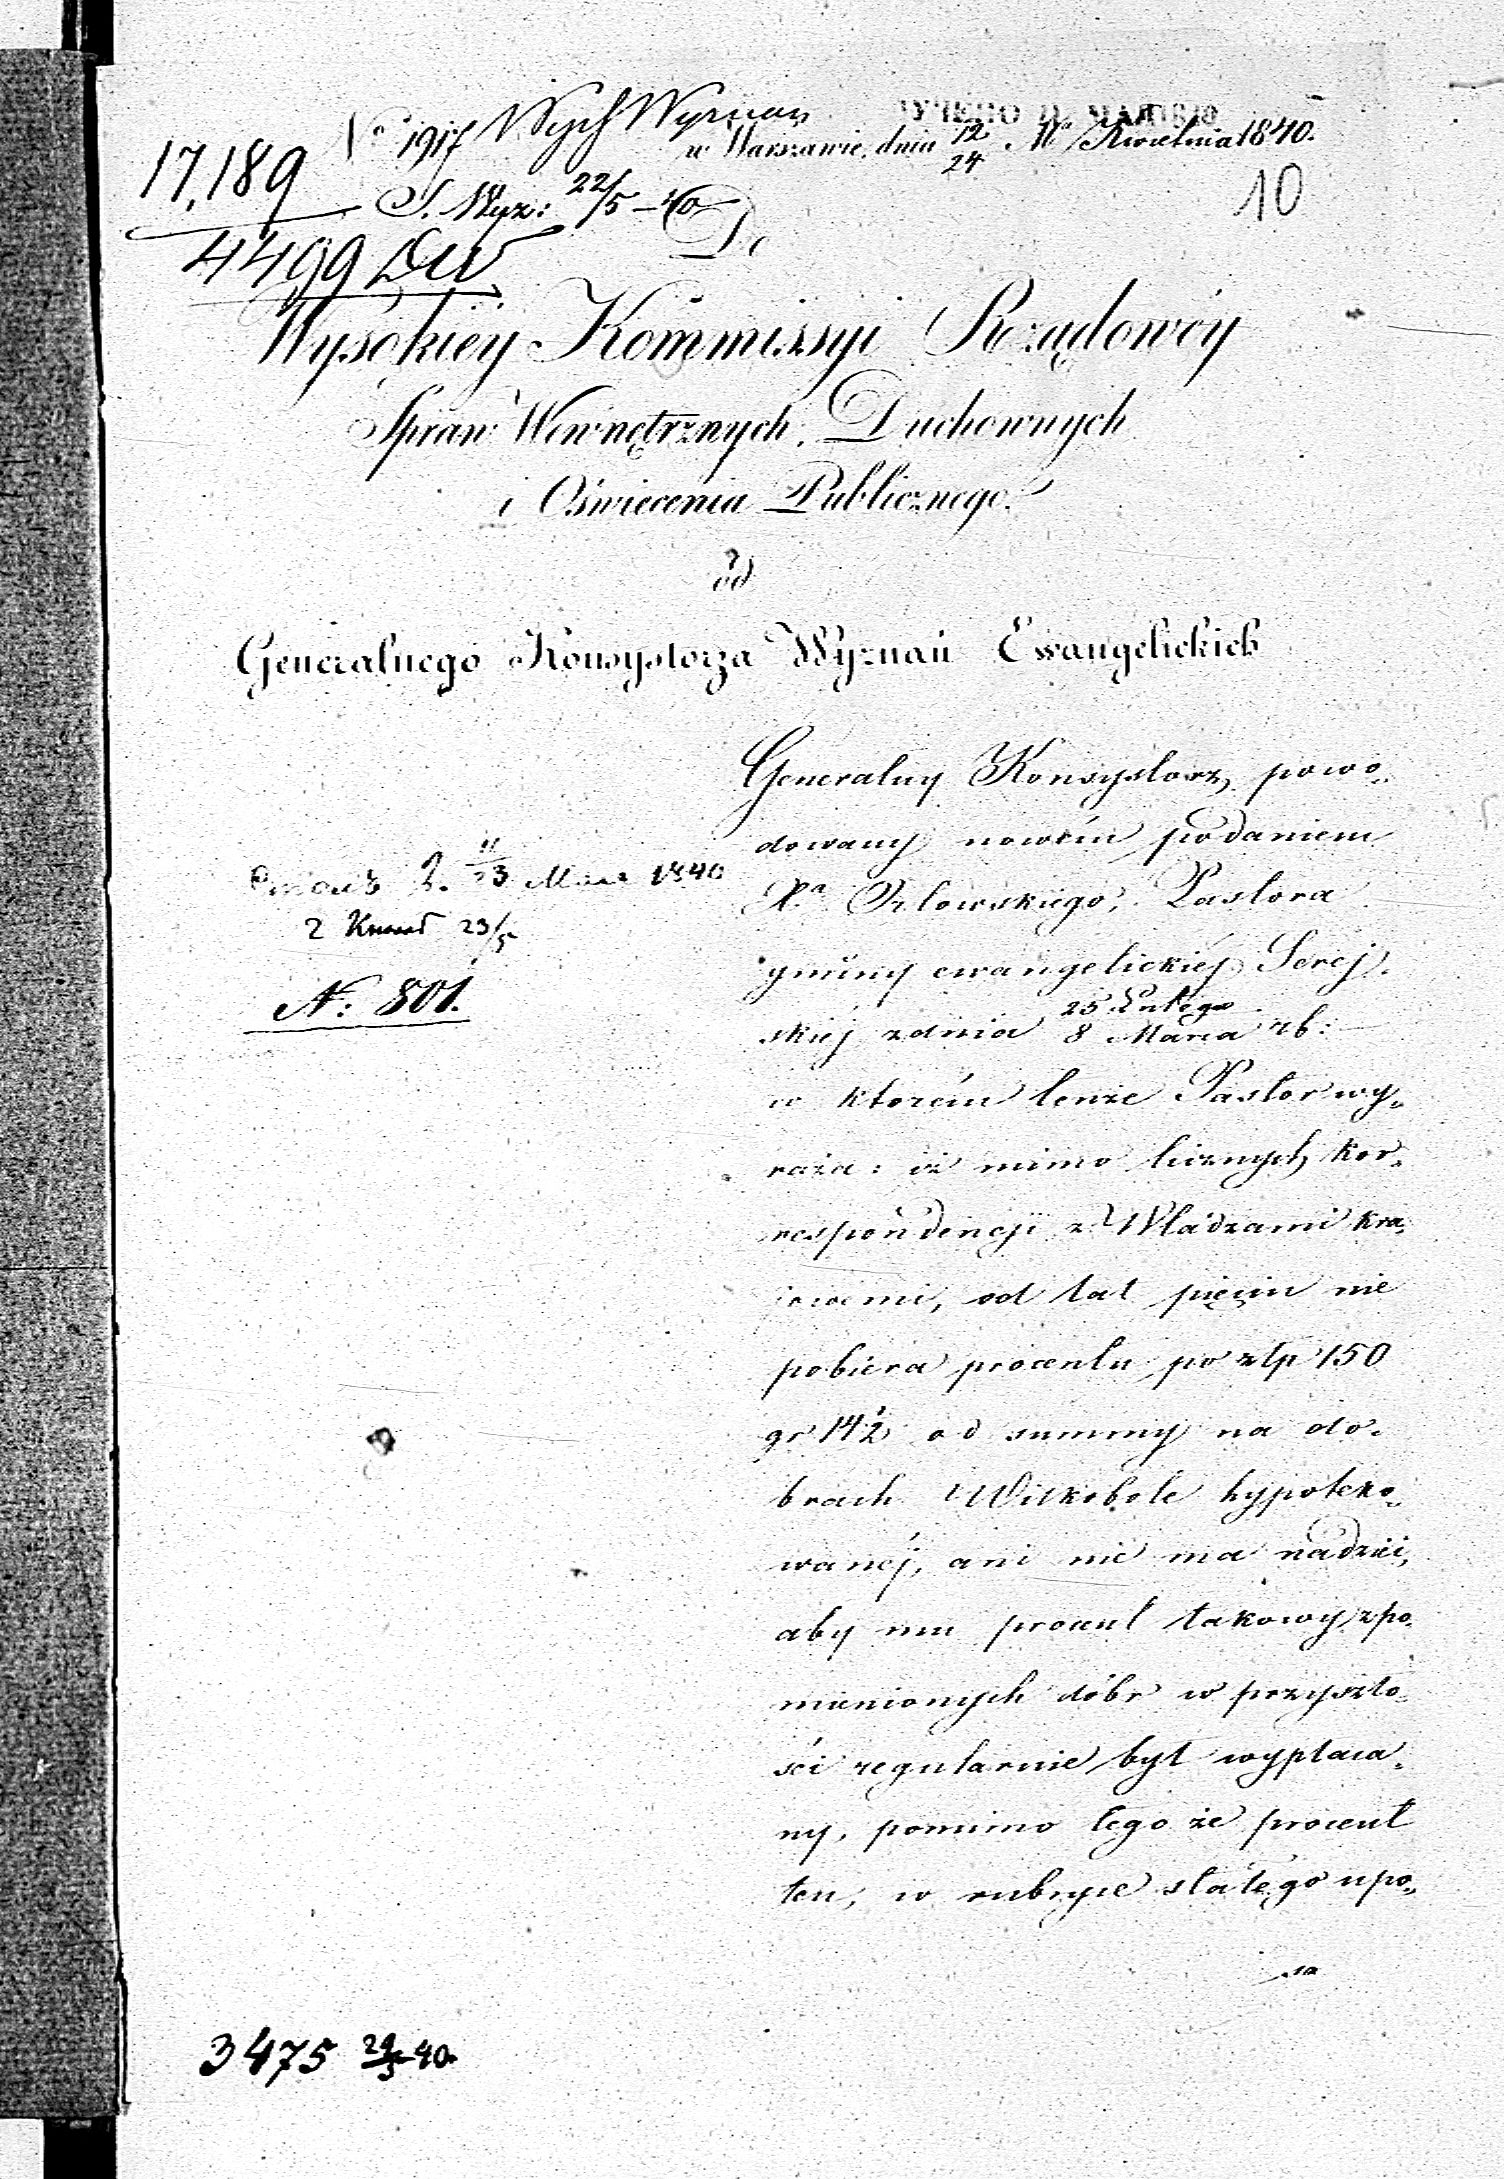 No 1917 Wych Wyznań
w Warszawie, dnia 12/24 Kwietnia 1840.
17,189
S. Wyz: 22/5 – 40
10
4499 DW
Do
Wysokiéy Kommissyi Rządowéy
Spraw Wewnętrznych, Duchownych
i Oświecenia Publicznego.
od
Generalnego Konsystorza Wyznań Ewangelickich
Generalny Konsystorz, powo-
dowany nowém podaniem
11/23 1840
Xa Orłowskiego, Pastora
23/5
gminy ewangelickiéj Serej-
N: 801.
skiéj z dnia 25 Lutego / 8 Marca rb:
w ktorém tenże Pastor wy-
raża: iż mimo licznych kor-
respondencji z Władzami kra-
iowemi, od lat pięciu nie
pobiera procentu po złp 150
gr 14½ od summy na do-
brach Witkobole hypoteko-
wanéj, ani nie ma nadziei,
aby mu procent takowy z po-
mienionych dóbr w przyszło-
ści regularnie był wypłaca-
ny, pomimo tego że procent
ten, w rubryce stałego upo-
sa
3475 29/5 40.